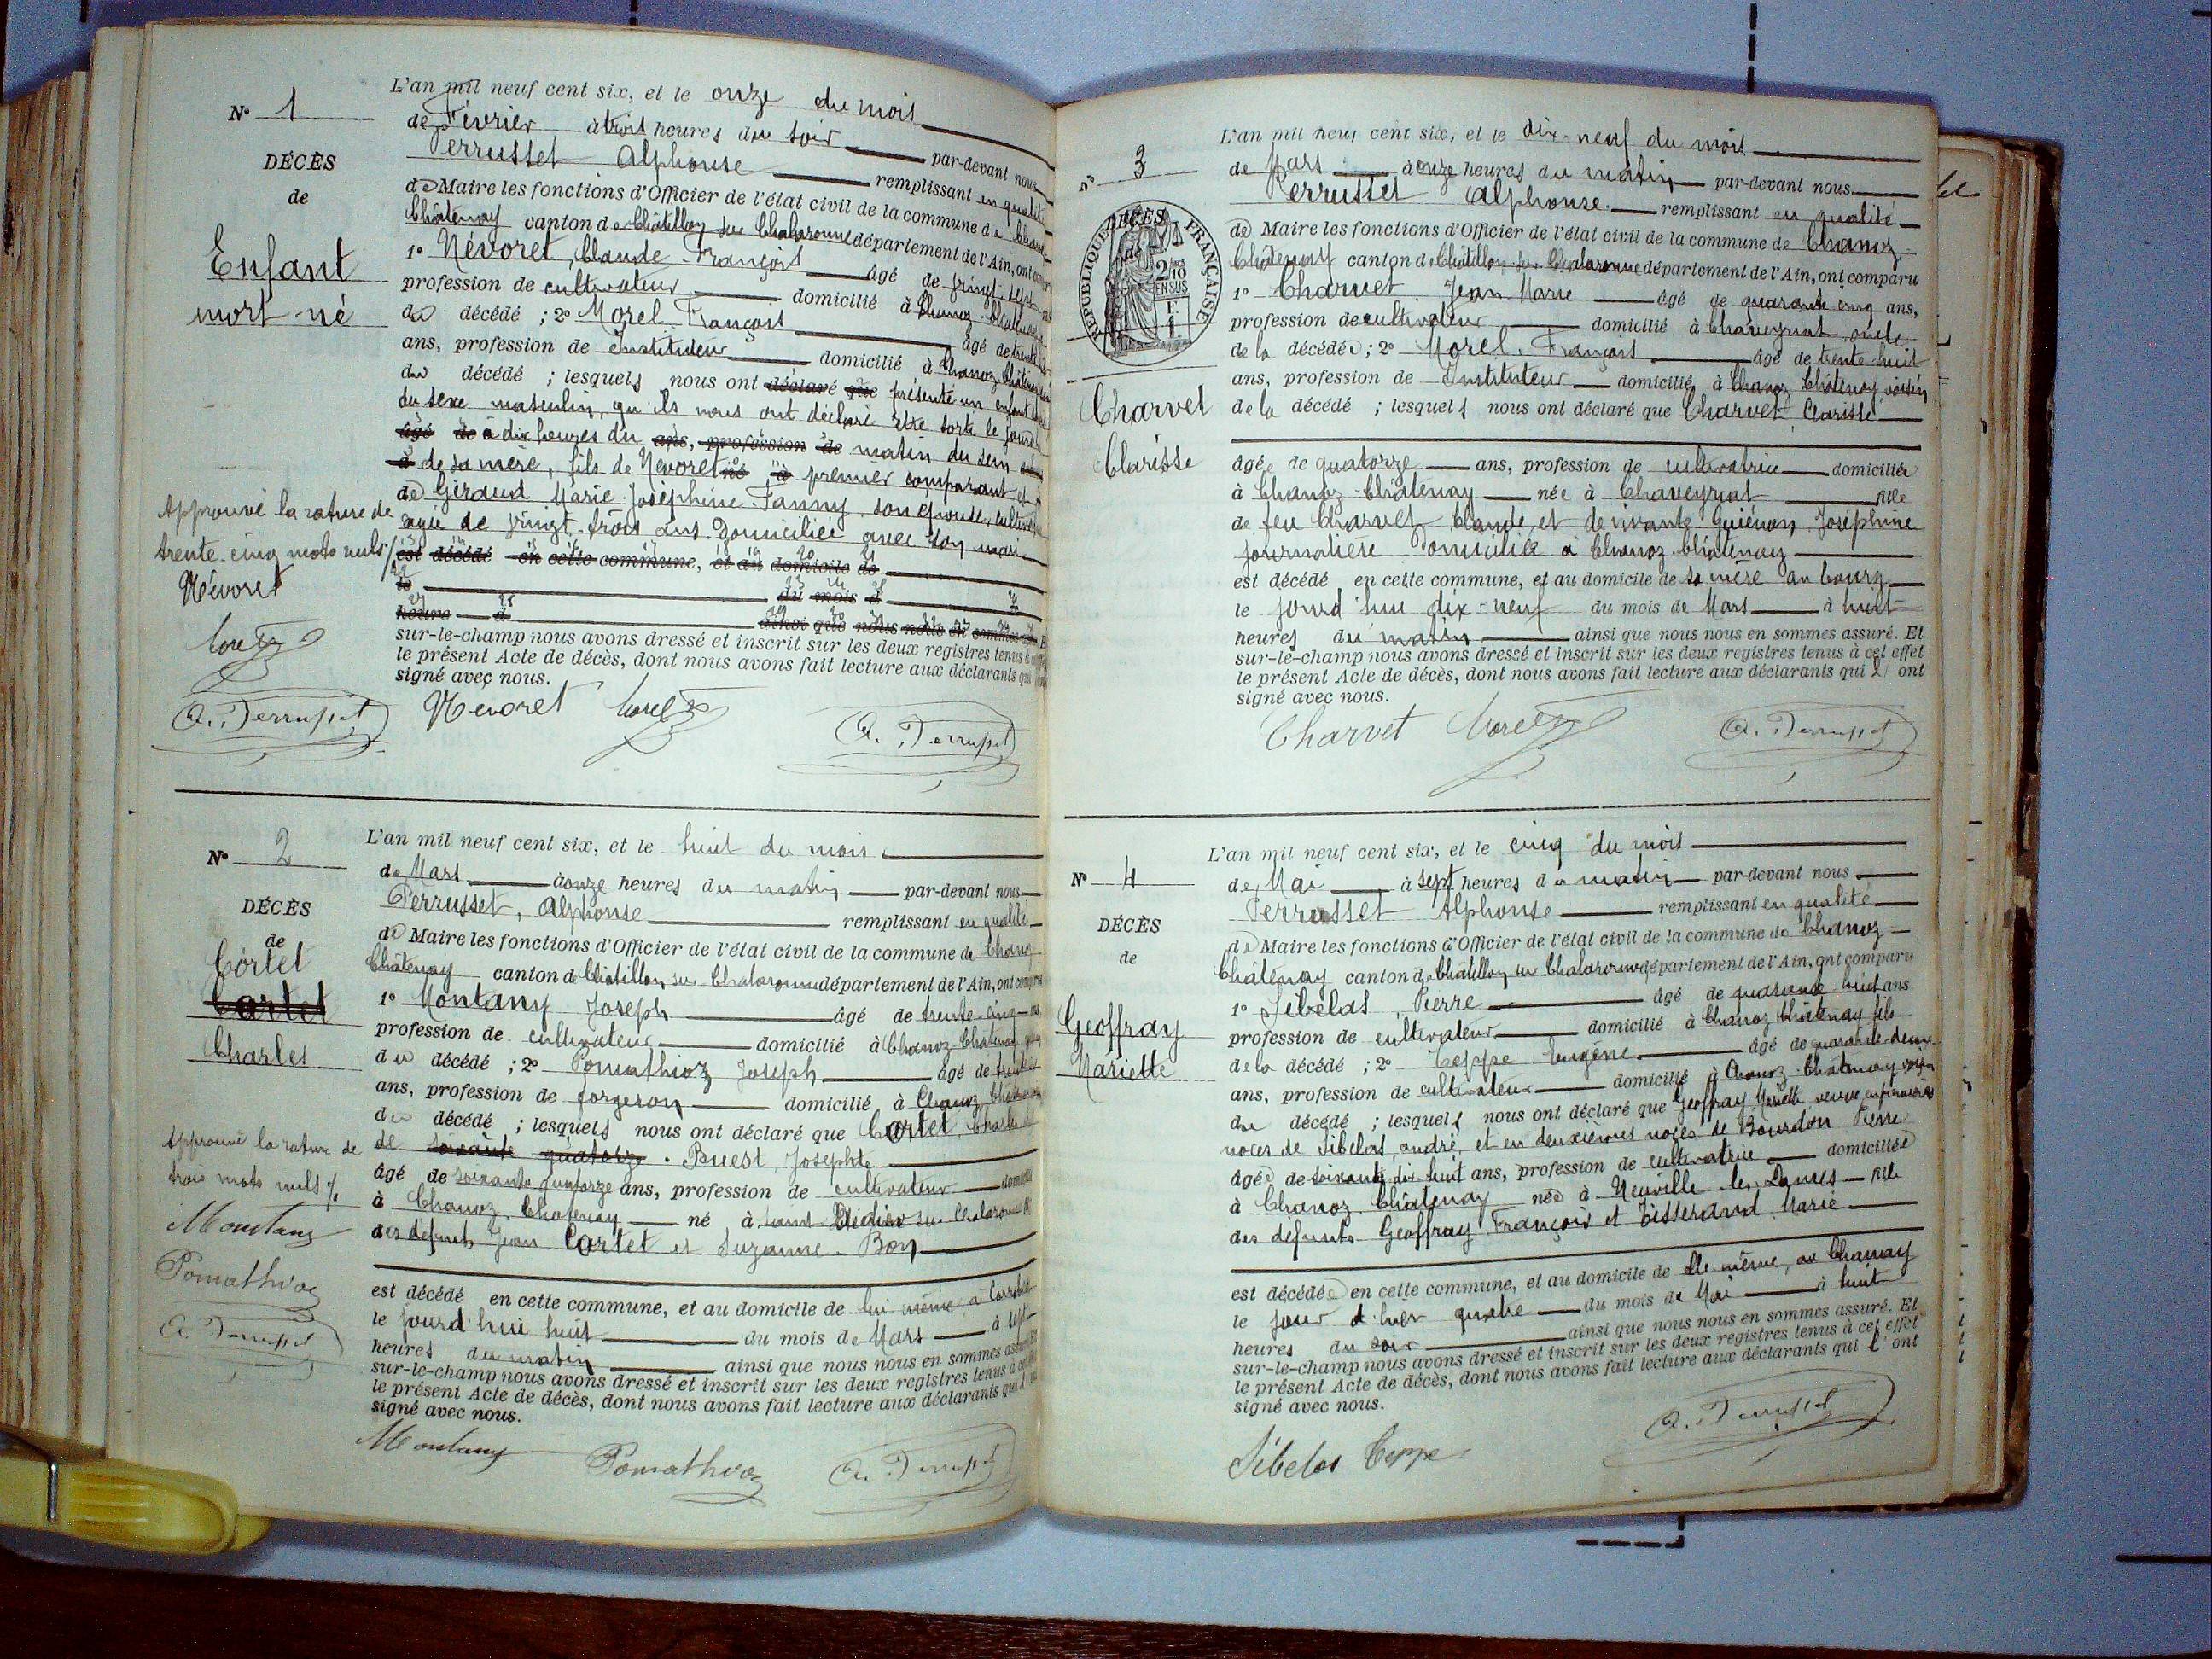 N° 1
DÉCÈS
de
Enfant
mort-né
L'an mil neuf cent six, et le onze du mois
de Février à trois heures du soir par-devant nous
Perrusset Alphonse remplissant en qualité
de Maire les fonctions d'Officier de l'état civil de la commune de
Châtenay canton de Châtillon sur Chalaronne département de l'Ain, ont
1° Névoret, Claude François âgé de vingt-sept
profession de cultivateur domicilié à Chanoz-Châtenay
du décédé ; 2° Morel François âgé de trente
ans, profession de Instituteur domicilié à Chanoz Châtenay
du décédé ; lesquels nous ont déclaré que présenté un enfant
du sexe masculin, qu'ils nous ont déclaré être sorti le jour
âgé de à dix heures du ans, profession de matin du sein
à de sa mère, fils de Névoret né à premier comparant et
de Giraud Marie Joséphine Fanny, son épouse,
agée de vingt-trois ans domiciliée avec son mari
est décédé en cette commune, et au domicile de
le du mois d
heure d ainsi que nous nous en
sur-le-champ nous avons dressé et inscrit sur les deux registres tenus à
le présent Acte de décès, dont nous avons fait lecture aux déclarants qui
signé avec nous.
Approuvé la rature de
trente-cinq mots nuls
Névoret
Morel
A. Perrusset
Névoret Morel A. Perrusset
N° 2
DÉCÈS
de
Cortet
Cartet
Charles
L'an mil neuf cent six, et le huit du mois
de Mars à onze heures du matin par-devant nous
Perrusset, Alphonse remplissant en qualité
de Maire les fonctions d'Officier de l'état civil de la commune de Chanoz
Châtenay canton de Châtillon sur Chalaronne département de l'Ain, ont
1° Montany Joseph âgé de trente-cinq
profession de cultivateur domicilié à Chanoz-Châtenay
du décédé ; 2° Pomathioz Joseph âgé de
ans, profession de forgeron domicilié à Chanoz Châtenay
du décédé ; lesquels nous ont déclaré que Cortet, Charles
de soixante quatorze. Buest, Josephte
âgé de soixante quatorze ans, profession de cultivateur
à Chanoz-Châtenay né à Saint Didier sur Chalaronne
des défunts Jean Cortet et Suzanne Bon
est décédé en cette commune, et au domicile de lui même à
le jourd'hui huit du mois de Mars à sept
heures du matin ainsi que nous nous en sommes
sur-le-champ nous avons dressé et inscrit sur les deux registres tenus à
le présent Acte de décès, dont nous avons fait lecture aux déclarants qui
signé avec nous.
Approuvé la rature de
trois mots nuls
Montany
Pomathioz
A. Perrusset
Montany Pomathioz A. Perrusset
N° 3
DÉCÈS
RÉPUBLIQUE FRANÇAISE
2/10 EN SUS
Charvet
Clarisse
L'an mil neuf cent six, et le dix-neuf du mois
de Mars à onze heures du matin par-devant nous
Perrusset Alphonse remplissant en qualité
de Maire les fonctions d'Officier de l'état civil de la commune de Chanoz
Châtenay canton de Châtillon sur Chalaronne département de l'Ain, ont comparu
1° Charvet Jean Marie âgé de quarante cinq ans,
profession de cultivateur domicilié à Chaveyriat oncle
de la décédée ; 2° Morel, François âgé de trente-huit
ans, profession de Instituteur domicilié à Chanoz Châtenay voisin
de la décédé ; lesquels nous ont déclaré que Charvet Clarisse
âgée de quatorze ans, profession de cultivatrice domiciliée
à Chanoz-Châtenay née à Chaveyriat fille
de feu Charvet Claude, et de vivante Guiénon, Joséphine
journalière domiciliée à Chanoz Châtenay
est décédé en cette commune, et au domicile de sa mère au bourg
le jourd'hui dix-neuf du mois de Mars à huit
heures du matin ainsi que nous nous en sommes assuré. Et
sur-le-champ nous avons dressé et inscrit sur les deux registres tenus à cet effet
le présent Acte de décès, dont nous avons fait lecture aux déclarants qui l'ont
signé avec nous.
Charvet Morel A. Perrusset
N° 4
DÉCÈS
de
Geoffray
Mariette
L'an mil neuf cent six, et le cinq du mois
de Mai à sept heures du matin par-devant nous
Perrusset Alphonse remplissant en qualité
de Maire les fonctions d'Officier de l'état civil de la commune de Chanoz
Châtenay canton de Châtillon sur Chalaronne département de l'Ain, ont comparu
1° Sibelas Pierre âgé de quarante huit ans
profession de cultivateur domicilié à Chanoz Châtenay fils
de la décédé ; 2° Teppe Eugène âgé de quarante-deux
ans, profession de cultivateur domicilié à Chanoz-Châtenay voisin
du décédé ; lesquels nous ont déclaré que Geoffray Mariette veuve en premières
noces de Sibelas, andré, et en deuxièmes noces de Bourdon Pierre
âgée de soixante dix huit ans, profession de cultivatrice domiciliée
à Chanoz Châtenay née à Neuville les Dames fille
des défunts Geoffray François et Tisserand Marie
est décédée en cette commune, et au domicile de elle même, au Chanay
le jour d'hier quatre du mois de Mai à huit
heures du soir ainsi que nous nous en sommes assuré. Et
sur-le-champ nous avons dressé et inscrit sur les deux registres tenus à cet effet
le présent Acte de décès, dont nous avons fait lecture aux déclarants qui l'ont
signé avec nous.
Sibelas Teppe A. Perrusset